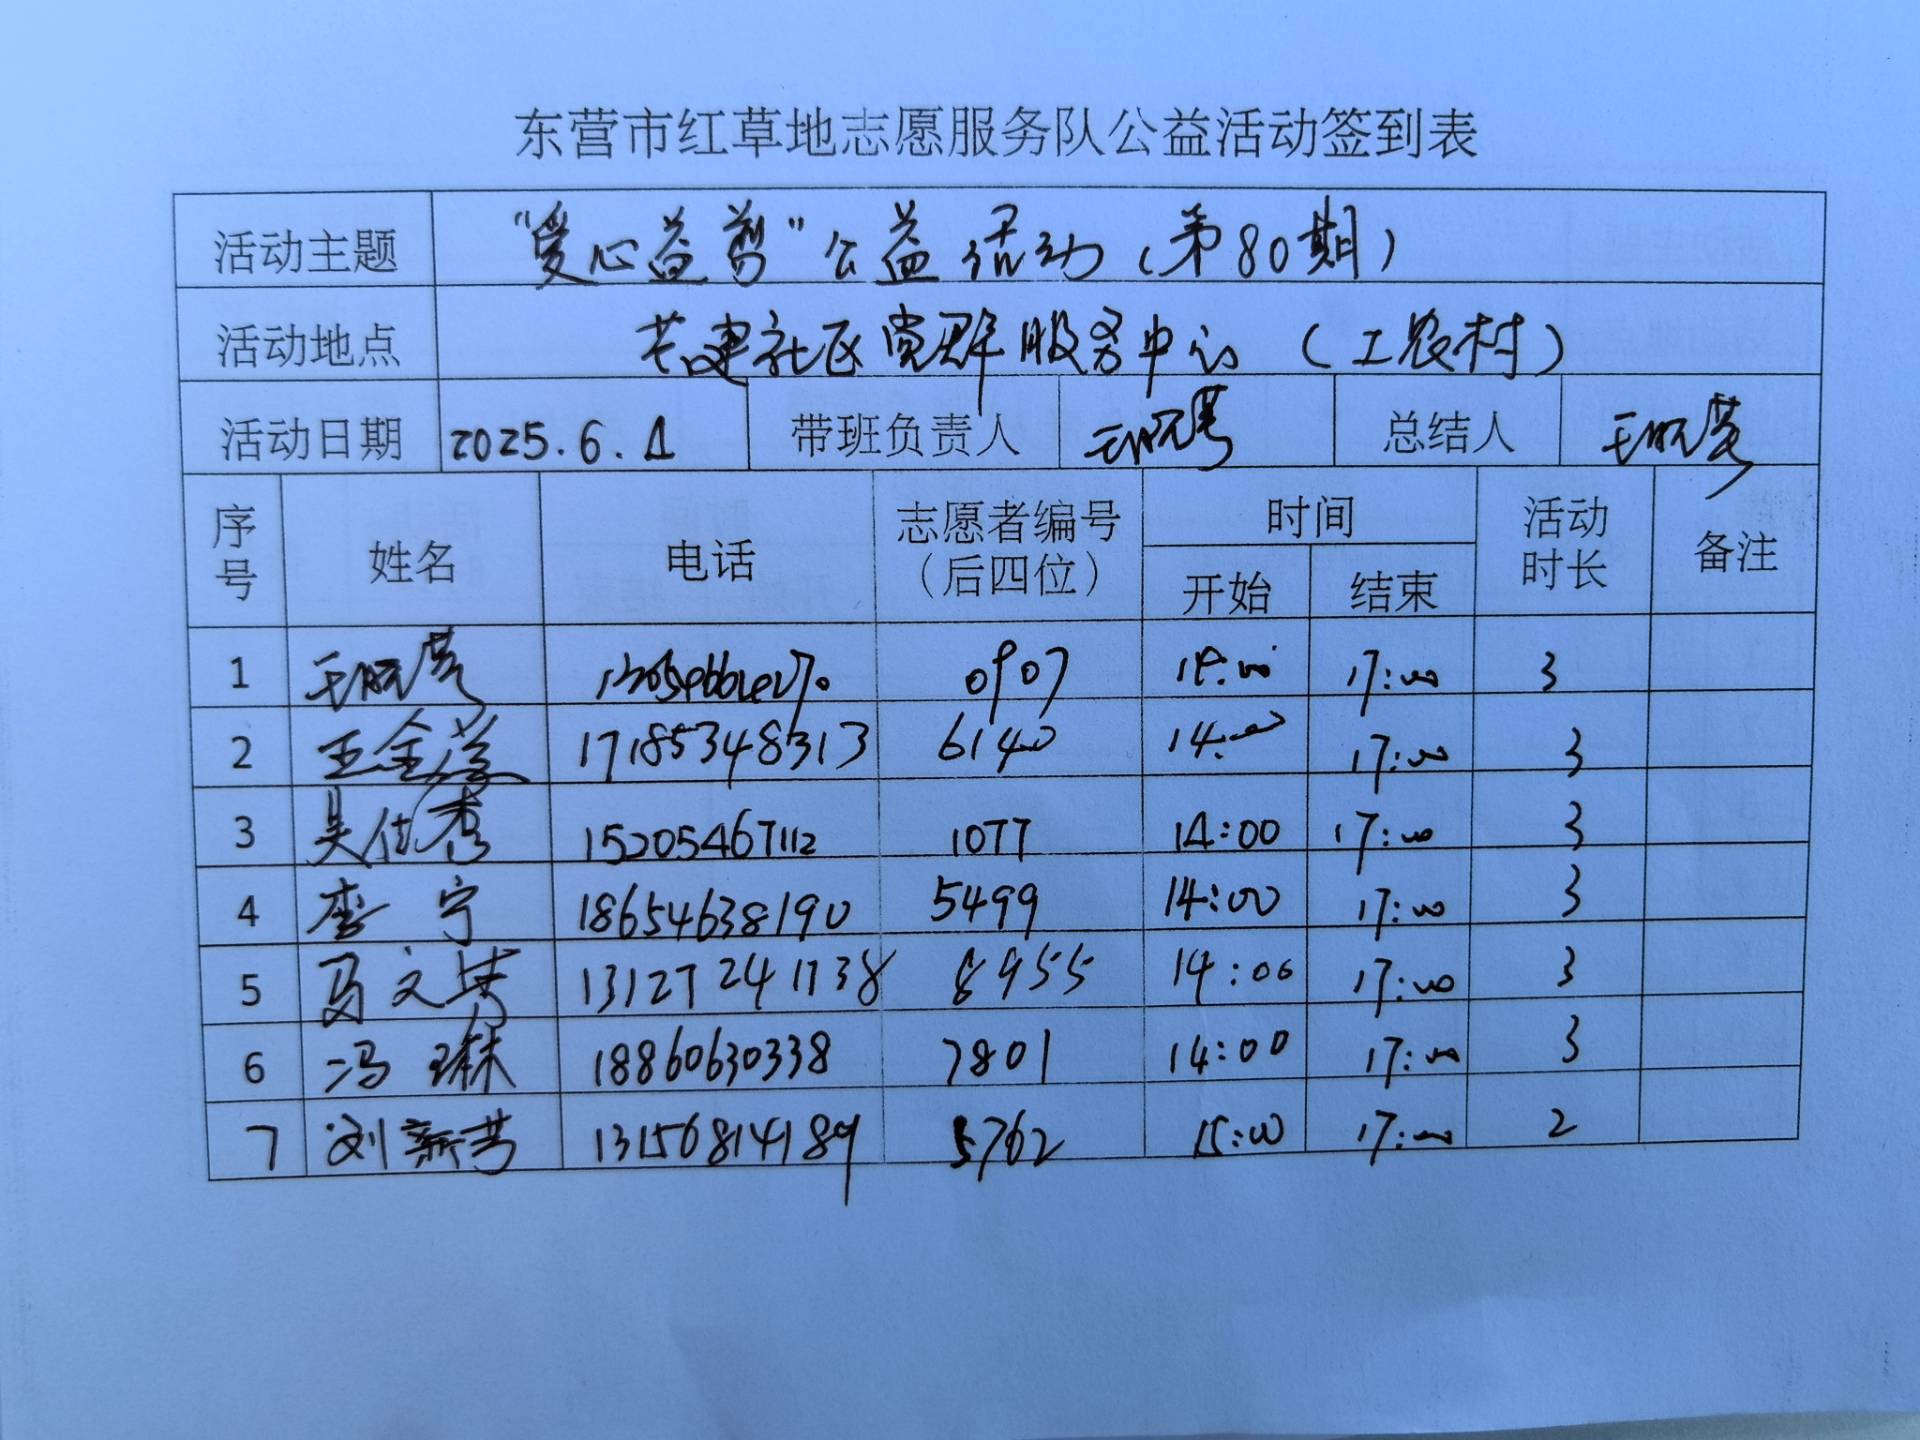 东营市红草地志愿服务队公益活动签到表
活动主题 "爱心益剪"公益活动（第80期）
活动地点 共建社区党群服务中心（工农村）
活动日期 2025.6.1 带班负责人 总结人
序号 姓名 电话 志愿者编号（后四位） 时间 开始 结束 活动时长 备注
1 0907 14:00 17:00 3
2 王金 17185348313 6140 14:00 17:00 3
3 吴仕秀 15205467112 1077 14:00 17:00 3
4 李宁 18654638190 5499 14:00 17:00 3
5 马文 13127241738 8955 14:00 17:00 3
6 冯琳 18860630338 7801 14:00 17:00 3
7 刘新芳 13156814189 5762 15:00 17:00 2